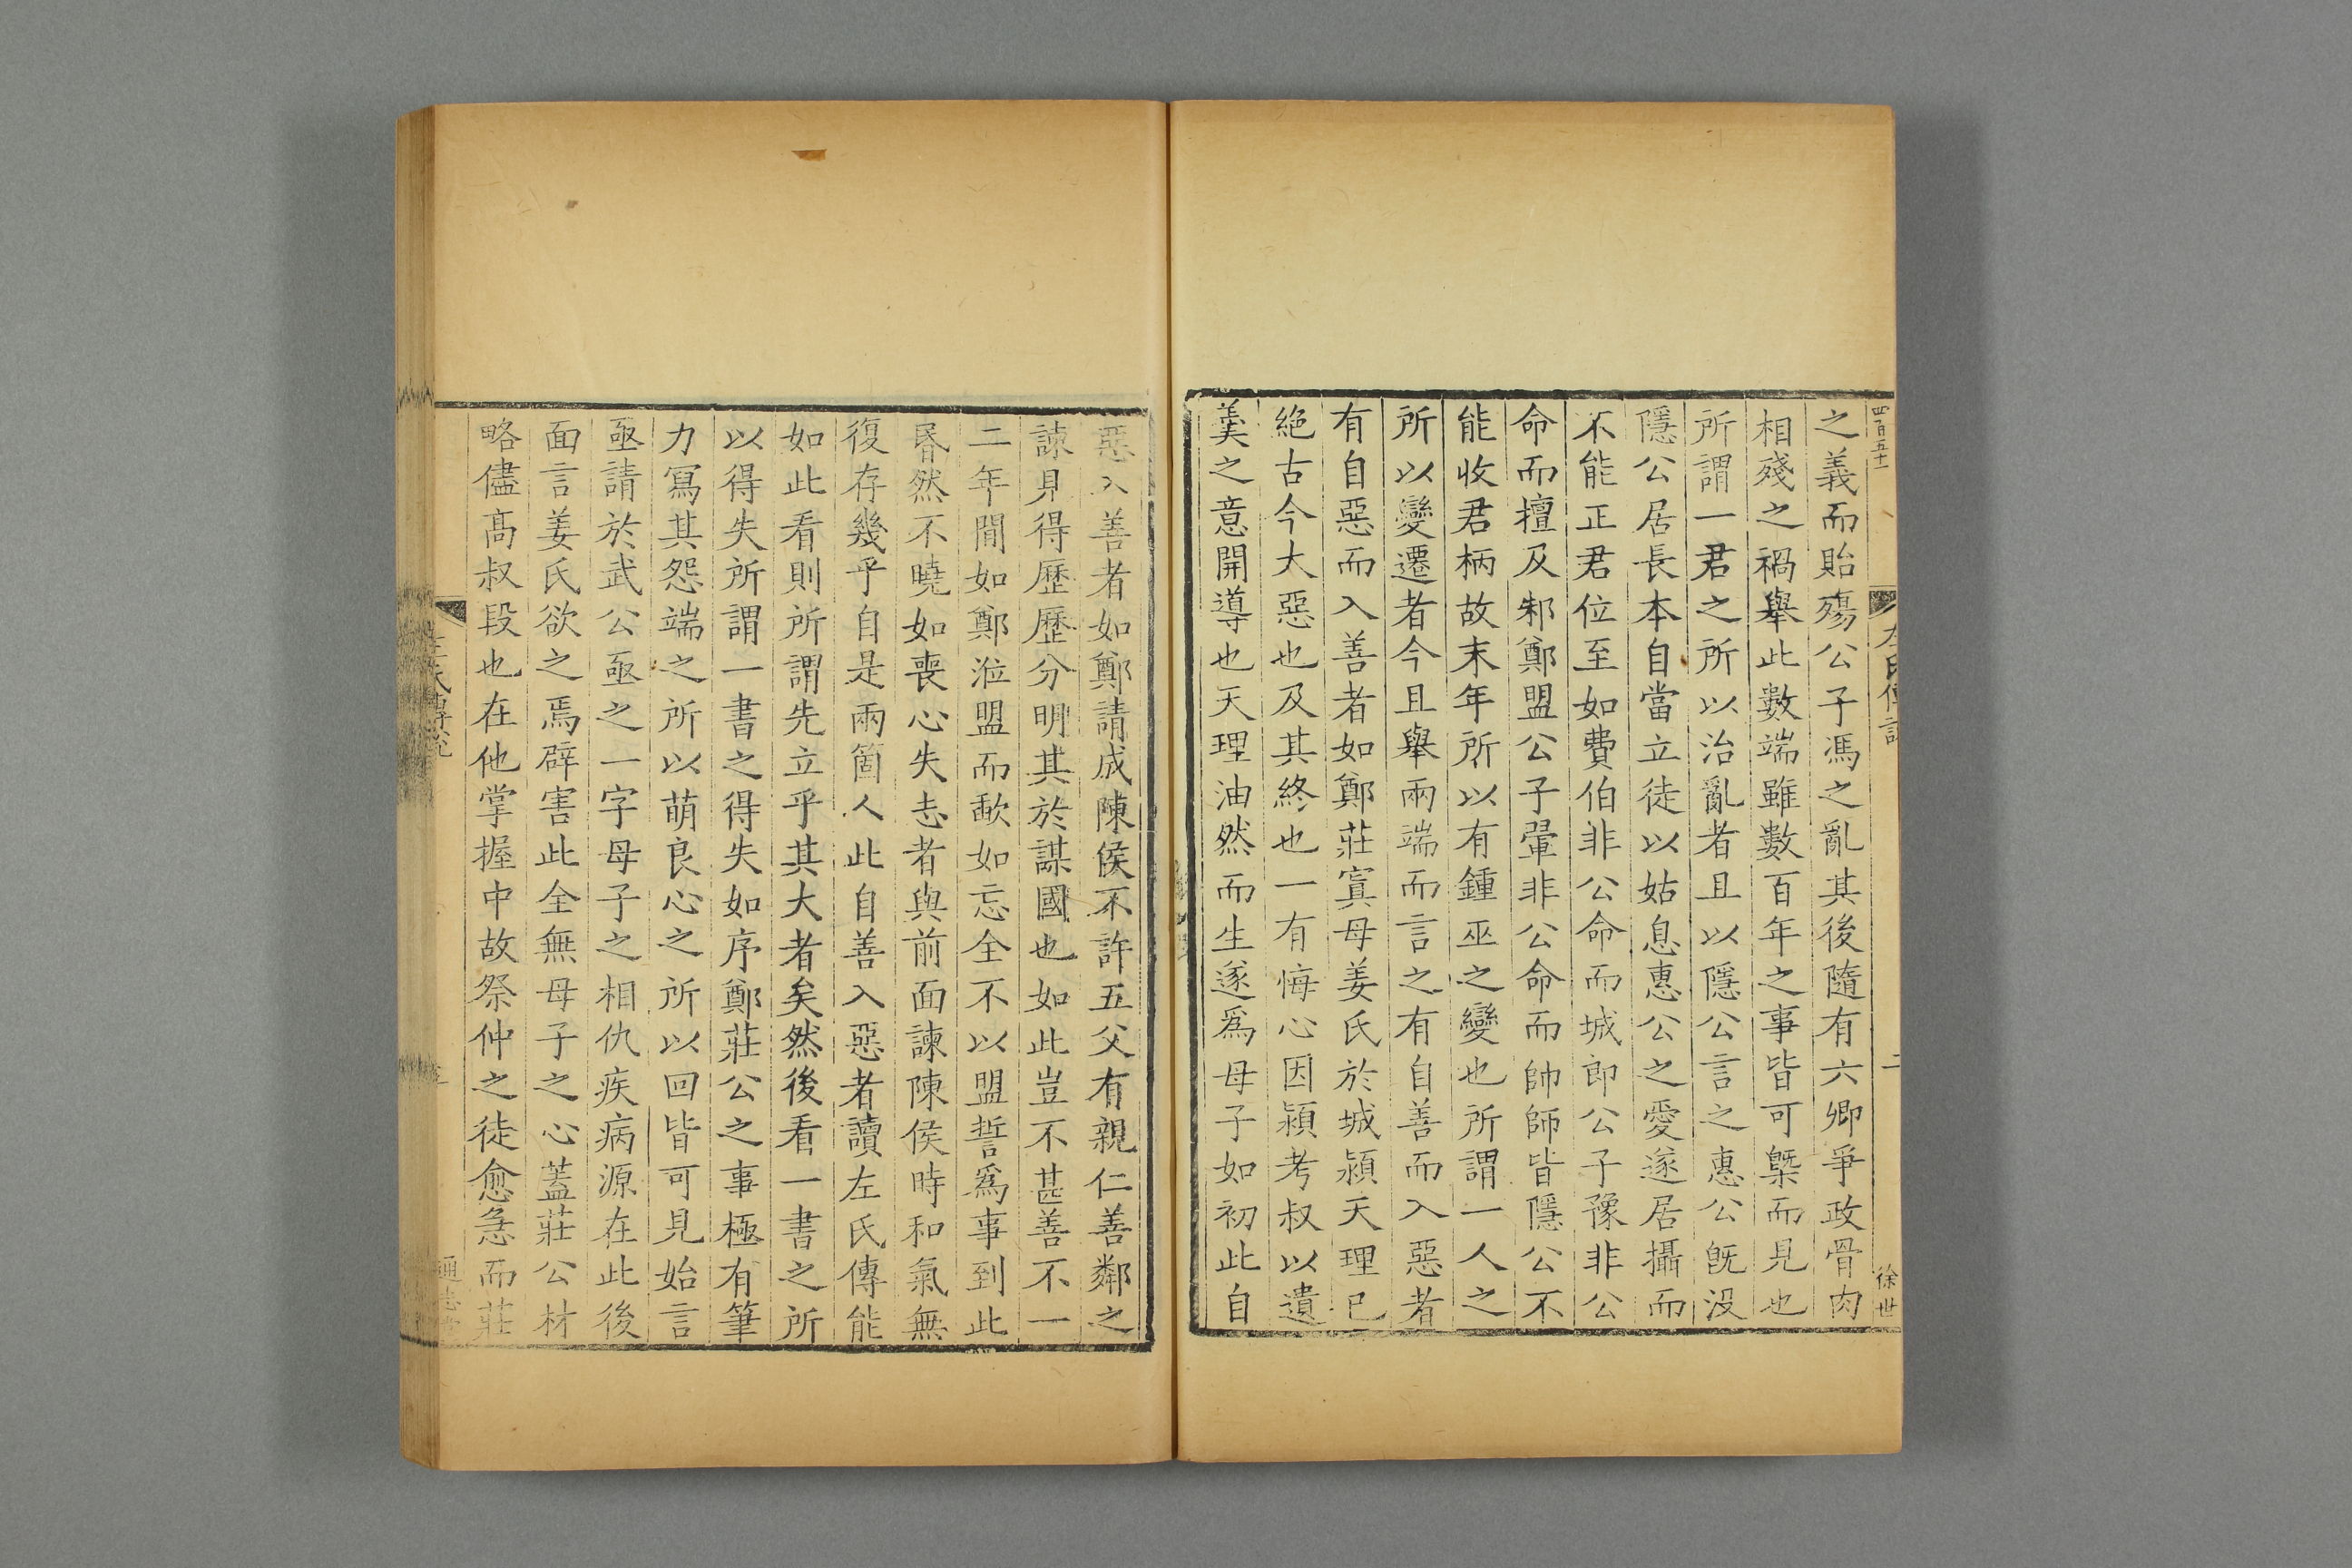 四百五十
左氏傳說
二
徐世
之義而貽殤公子馮之亂其後隨有六卿爭政骨肉
相殘之禍舉此數端雖數百年之事皆可槩而見也
所謂一君之所以治亂者且以隱公言之惠公旣沒
隱公居長本自當立徒以姑息惠公之愛遂居攝而
不能正君位至如費伯非公命而城郎公子豫非公
命而擅及邾鄭盟公子翬非公命而帥師皆隱公不
能收君柄故末年所以有鍾巫之變也所謂一人之
所以變遷者今且舉兩端而言之有自善而入惡者
有自惡而入善者如鄭莊寘母姜氏於城潁天理已
絶古今大惡也及其終也一有悔心因潁考叔以遺
羹之意開導也天理油然而生遂爲母子如初此自
惡入善者如鄭請成陳侯不許五父有親仁善鄰之
諫見得歷歷分明其於謀國也如此豈不甚善不一
二年間如鄭涖盟而歃如忘全不以盟誓爲事到此
昬然不曉如喪心失志者與前面諫陳侯時和氣無
復存幾乎自是兩箇人此自善入惡者讀左氏傳能
如此看則所謂先立乎其大者矣然後看一書之所
以得失所謂一書之得失如序鄭莊公之事極有筆
力寫其怨端之所以萌良心之所以回皆可見始言
亟請於武公亟之一字母子之相仇疾病源在此後
面言姜氏欲之焉辟害此全無母子之心蓋莊公材
略儘高叔段也在他掌握中故祭仲之徒愈急而莊
左氏傳說
通志堂